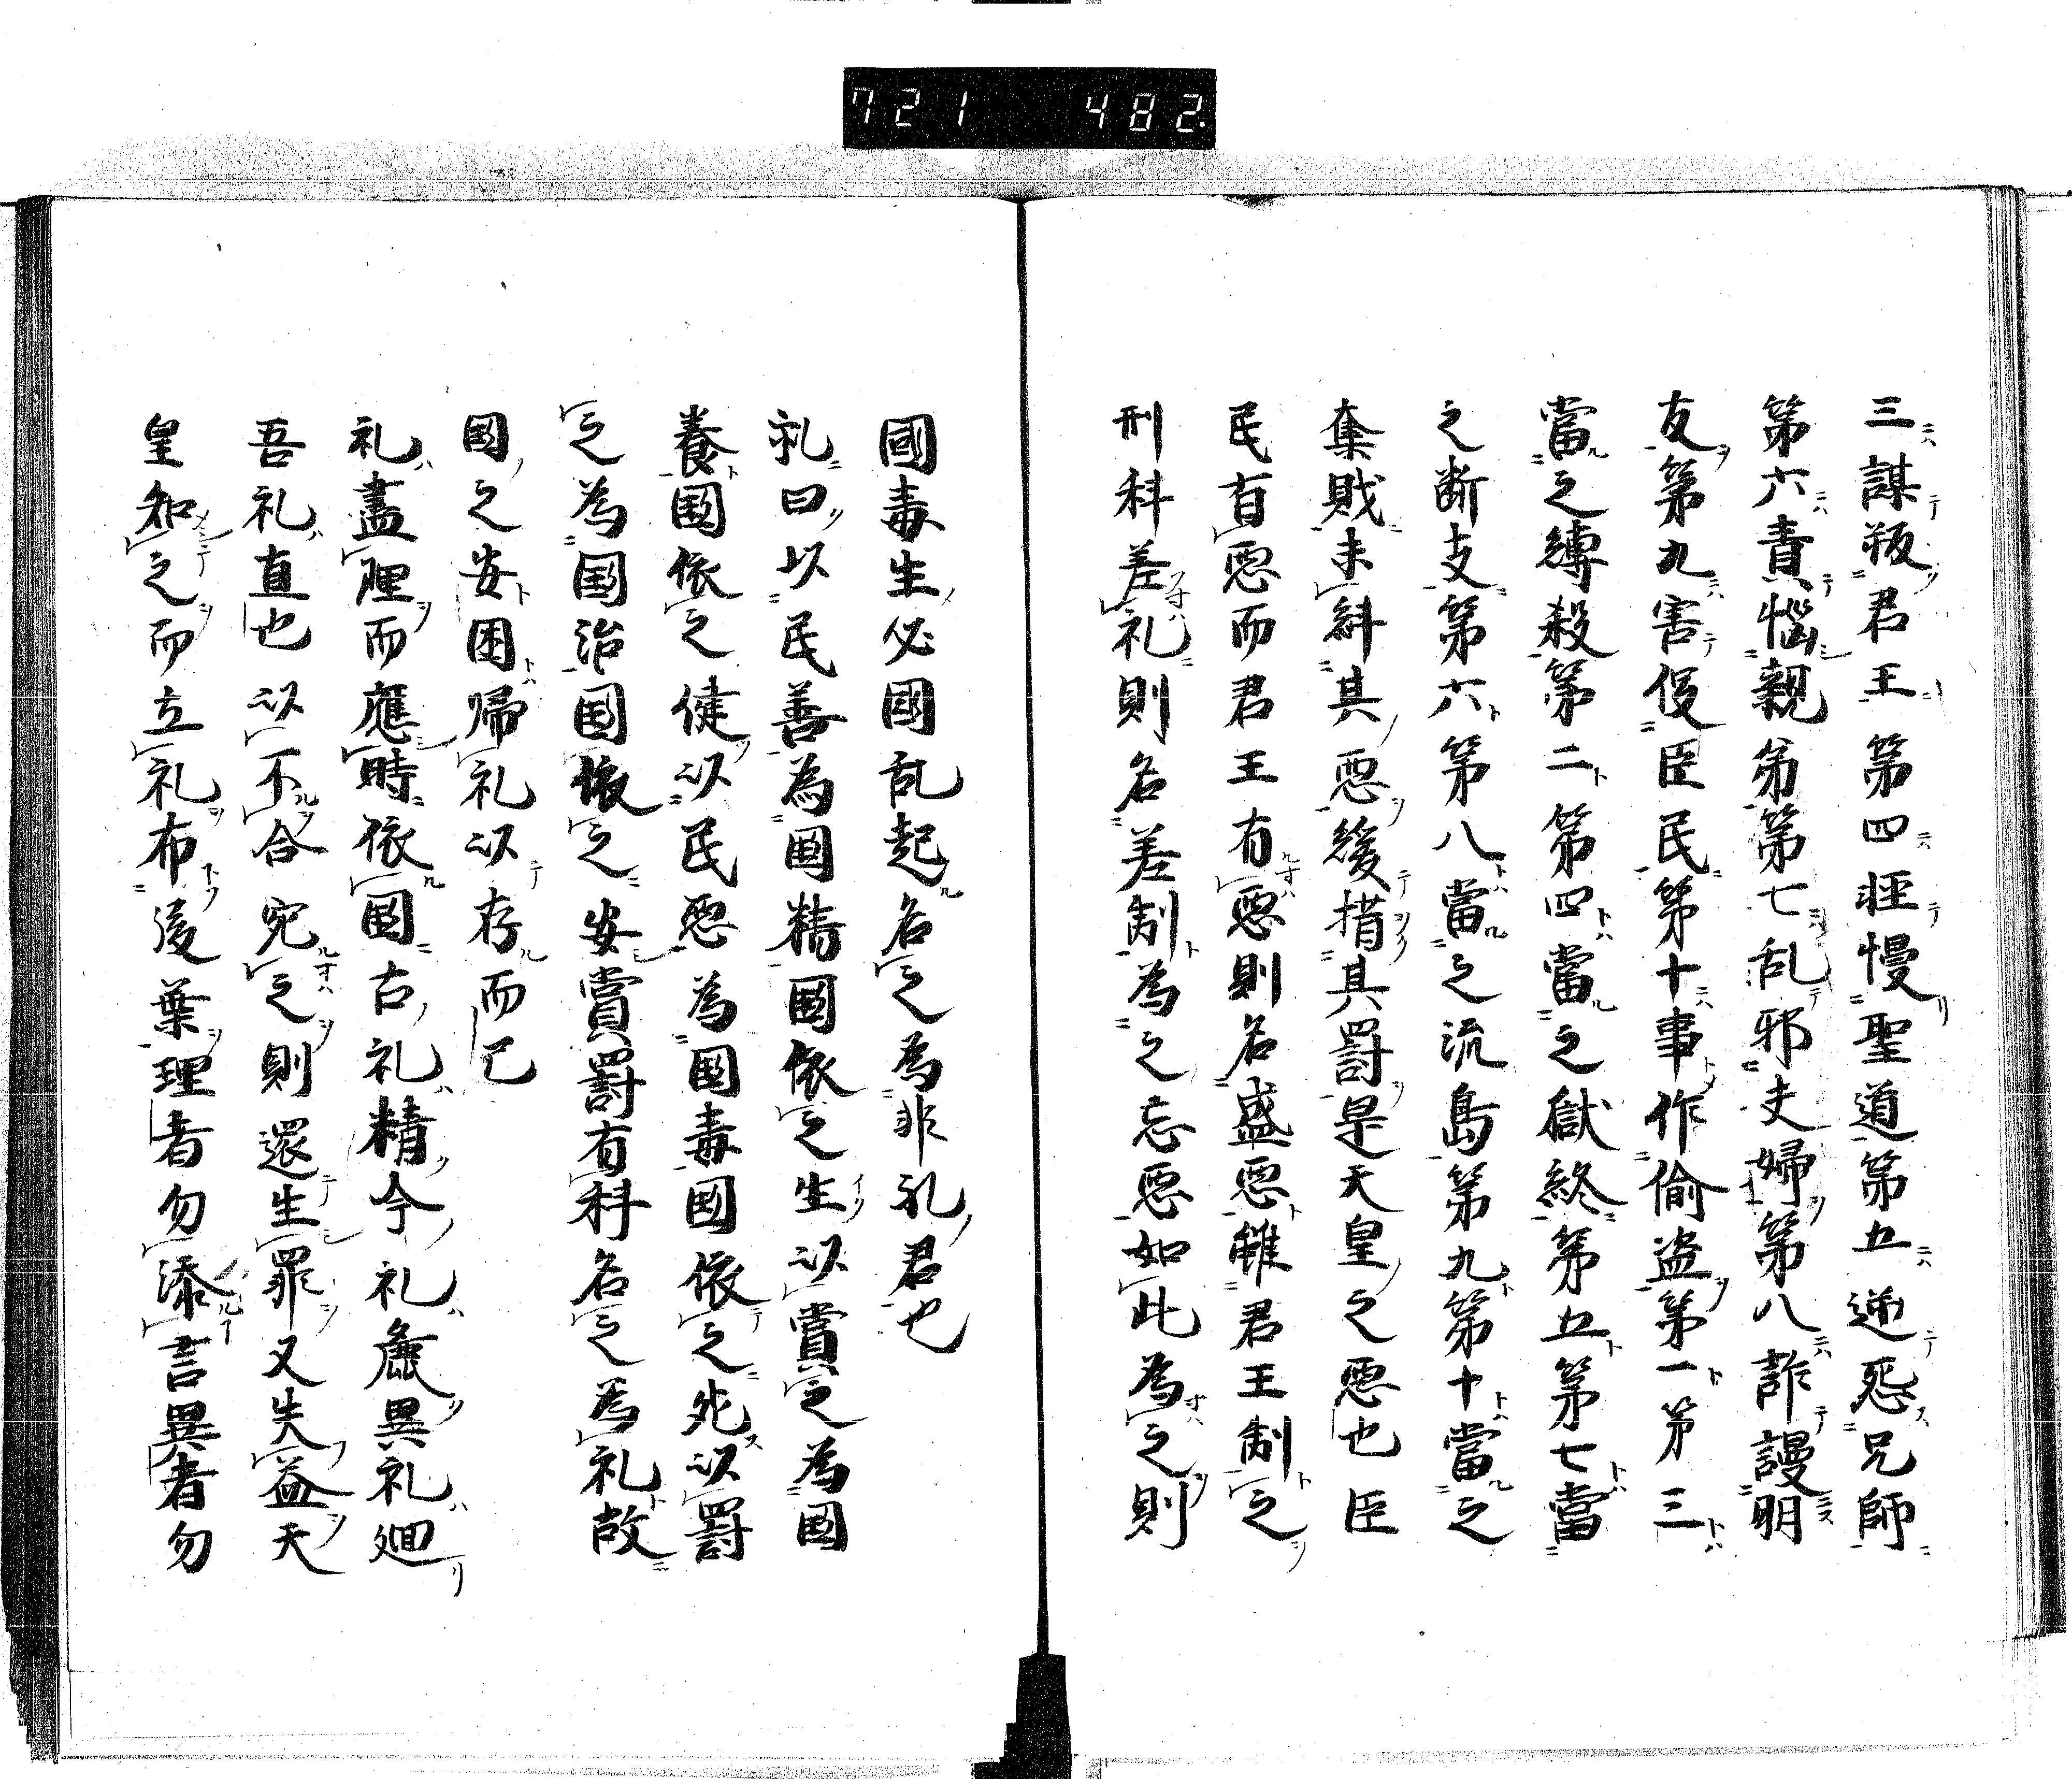 721 482.
三謀叛君王第四誑慢聖道第五逆怨兄師
第六責惱親弟第七乱邪夫婦第八詐謾朋
友第九害侫臣民第十事作偷盗第一第三
當之縛殺第二第四當之獄終第五第七當
之断支第六第八當之流島第九第十當之
奪賎未糾其惡後措其罸是天皇之惡也臣
民有惡而君王有惡則名盛惡雖君王制之
刑科差礼則名差制為之忘惡如此為之則
國毒生必國乱起名之為非礼君也
礼曰以民善為國精國依之生以賞之為國
養国依之健以民惡為国毒国依之死以罸
之為国治国依之安賞罸有科名之為礼故
国之安困帰礼以存而已
礼盡理而應時依国古礼精今礼麁異礼廻
吾礼直也以不合宛之則還生罪又失益天
皇知之而立礼布後葉理者勿添言異者勿